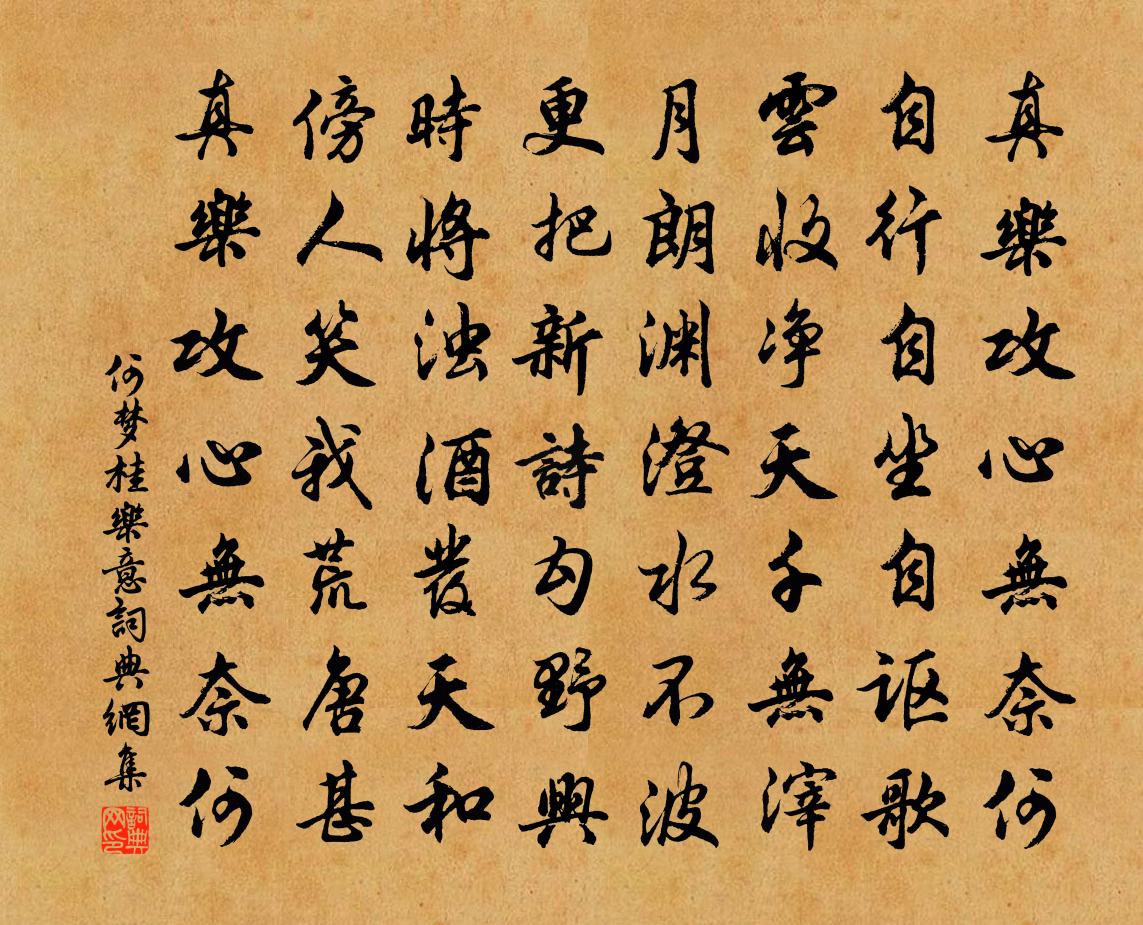 真樂攻心無奈何
自行自坐自讴歌
雲收净天千無滓
月朗渊澄水不波
更把新詩勾野興
時將浊酒發天和
傍人笑我荒唐甚
真樂攻心無奈何
何梦桂樂意詞典網集
詞典网印